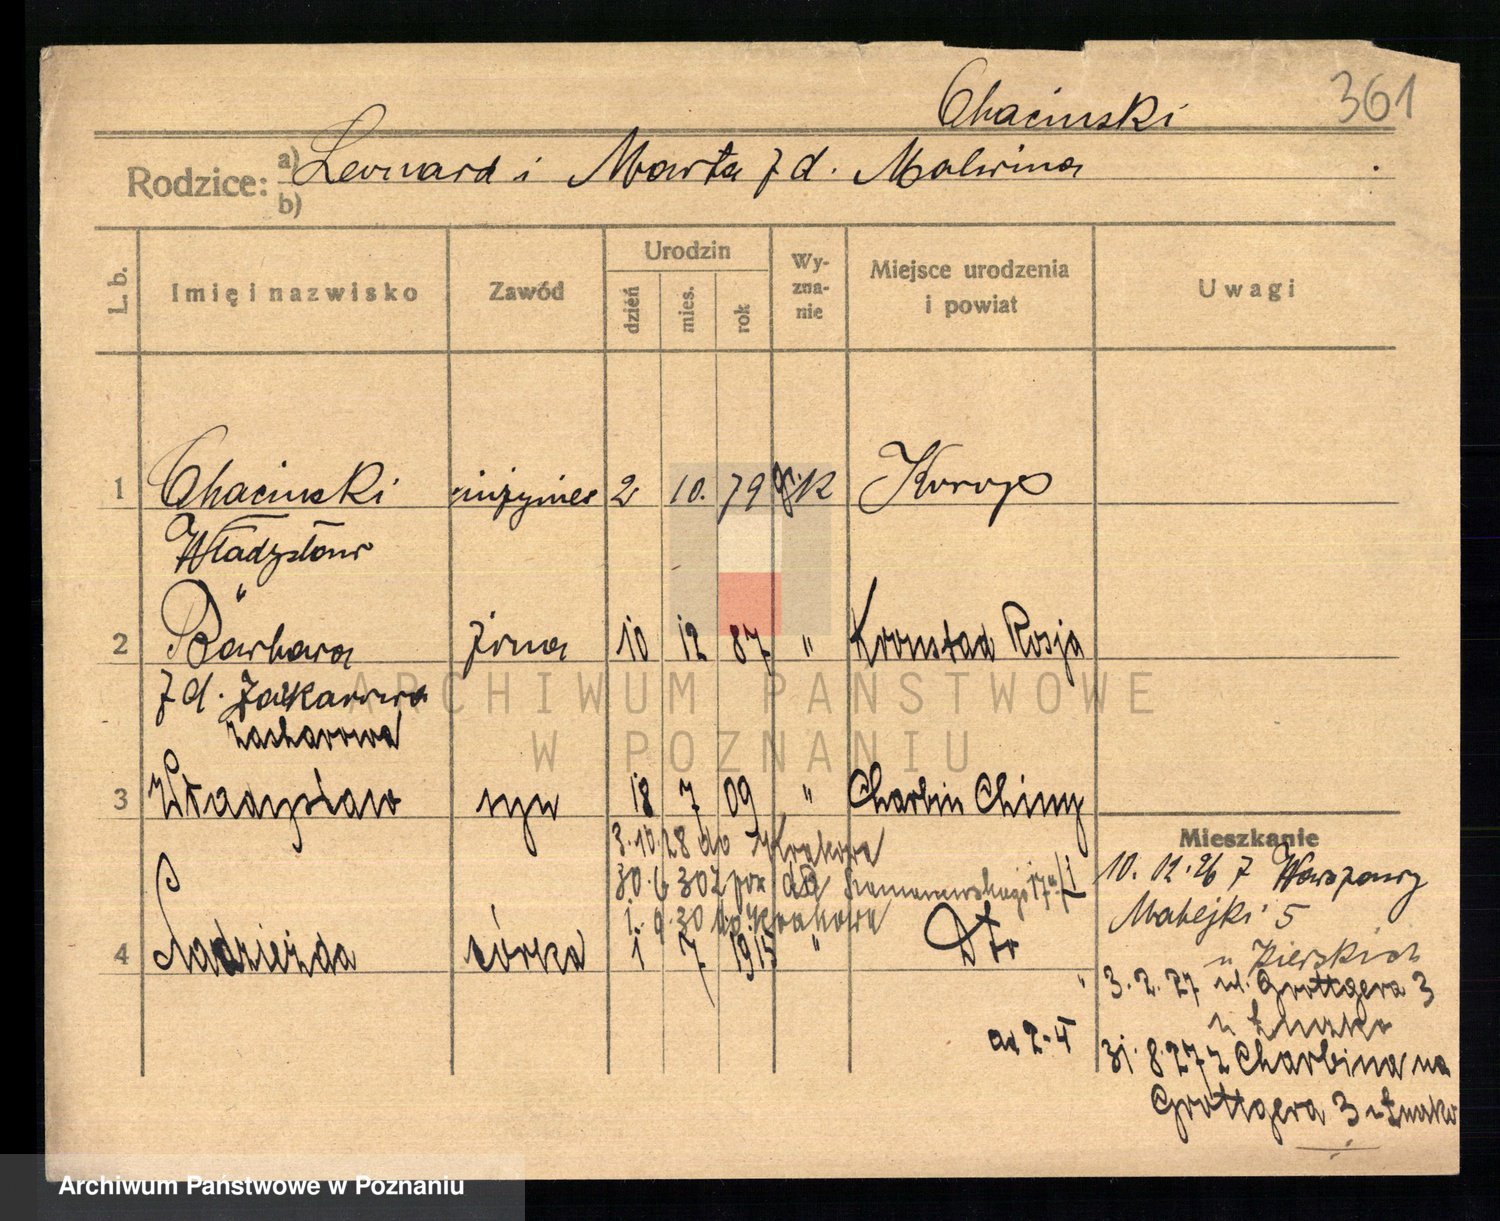 Chacinski 361
Rodzice: a) Leonard i Marta z d. Malwina
b)
L. b. Imię i nazwisko Zawód Urodzin dzień mies. rok Wy-zna-nie Miejsce urodzenia i powiat Uwagi
1 Chacinski inżynier 2 10. 79 K Korop
Władysław
2 Barbara żona 10 12 87 " Kronstad Rosja
z d. Zakarowa
Zacharowa
ARCHIWUM PAŃSTWOWE
W POZNANIU
3 Władysław syn 18 7 09 " Charbin Chiny
3.10.28 do Krakowa
30.6.30 z poz do 17a/I
1.9.30 do Krakowa
4 Nadzieżda córka 1 7 1915 " Dto
ad 2-4
Mieszkanie
10. 12. 26 z Warszawy
Matejki 5
u Zierskich
3. 2. 27 ul. Grottgera 3
u
31. 8. 27 z Charbina na
Grottgera 3 u
Archiwum Państwowe w Poznaniu